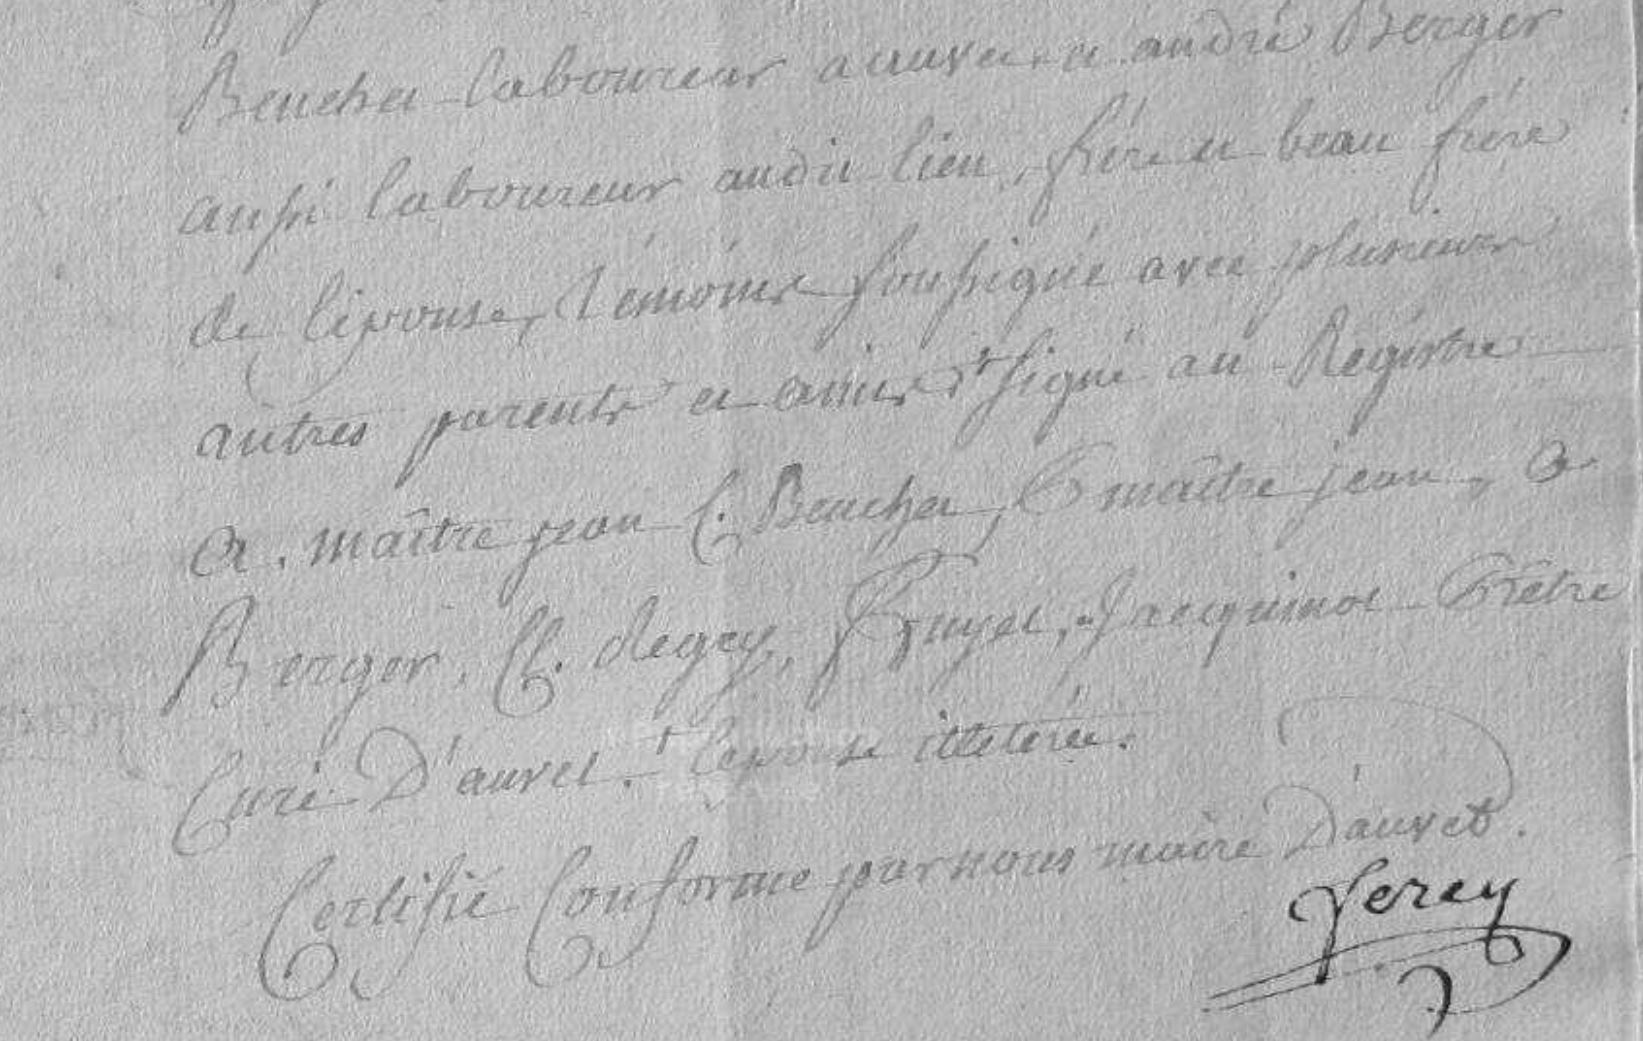 Beuchet laboureur a auvet et andré Berger
aussi laboureur audit lieu, frère et beau frère
de l'épouse, témoins soussigné avec plusieurs
autres parents et amis signé au Registre
maître jean C. Beuchet, maître jean, a
Berger, Cl. degey, Bruyet, Jacquinot Prêtre
Curé D'auvet. l'epouse illeterée.
Certifié Conforme par nous maire D'auvet.